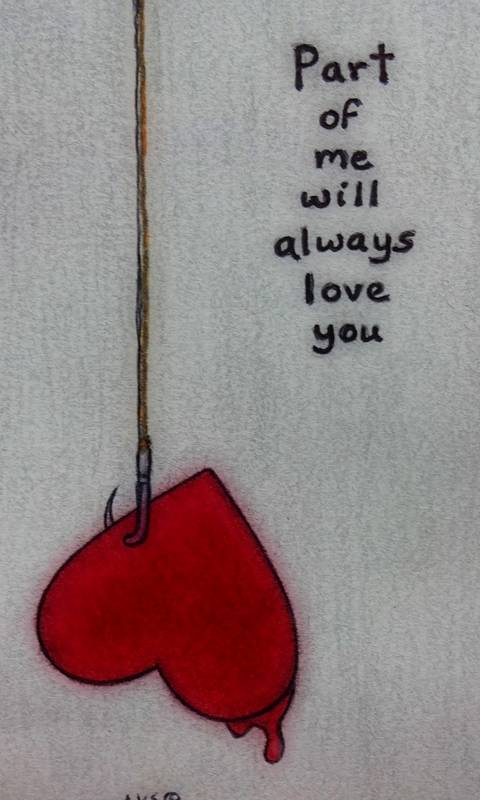 Part
of
me
will
always
love
you